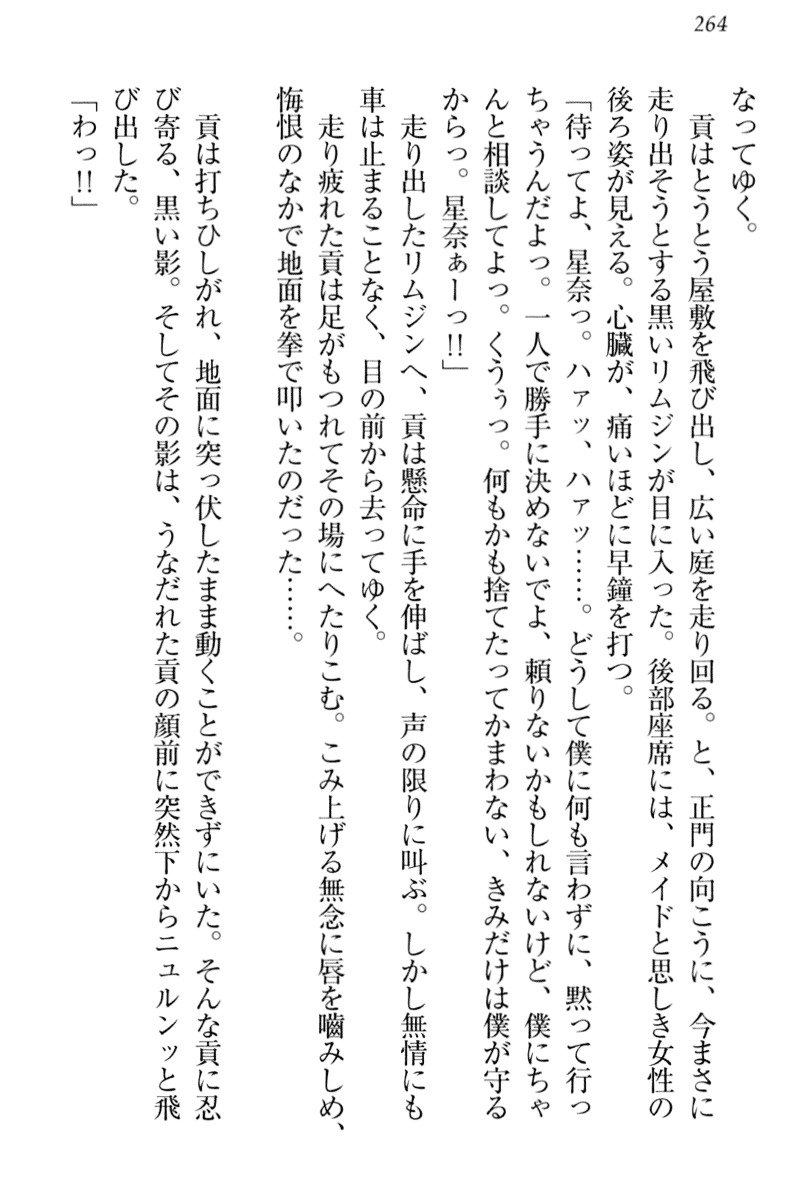 264
なってゆく。
　貢はとうとう屋敷を飛び出し、広い庭を走り回る。と、正門の向こうに、今まさに
走り出そうとする黒いリムジンが目に入った。後部座席には、メイドと思しき女性の
後ろ姿が見える。心臓が、痛いほどに早鐘を打つ。
「待ってよ、星奈っ。ハァッ、ハァッ……。どうして僕に何も言わずに、黙って行っ
ちゃうんだよっ。一人で勝手に決めないでよ、頼りないかもしれないけど、僕にちゃ
んと相談してよっ。くうぅっ。何もかも捨てたってかまわない、きみだけは僕が守る
からっ。星奈ぁーっ!!」
　走り出したリムジンへ、貢は懸命に手を伸ばし、声の限りに叫ぶ。しかし無情にも
車は止まることなく、目の前から去ってゆく。
　走り疲れた貢は足がもつれてその場にへたりこむ。こみ上げる無念に唇を嚙みしめ、
悔恨のなかで地面を拳で叩いたのだった……。
　貢は打ちひしがれ、地面に突っ伏したまま動くことができずにいた。そんな貢に忍
び寄る、黒い影。そしてその影は、うなだれた貢の顔前に突然下からニュルンッと飛
び出した。
「わっ!!」